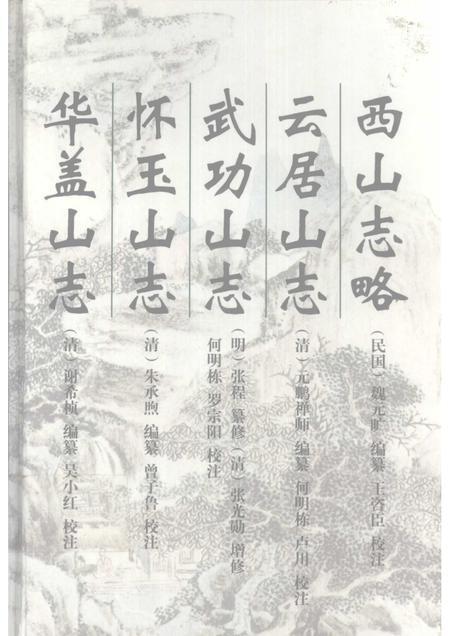 西山志略
（民国）魏元旷 编纂 王咨臣 校注
云居山志
（清）元鹏禅师 编纂 何明栋 卢川 校注
武功山志
（明）张程 纂修（清）张光勋 增修
何明栋 罗宗阳 校注
怀玉山志
（清）朱承煦 编纂 曾子鲁 校注
华盖山志
（清）谢希桢 编纂 吴小红 校注